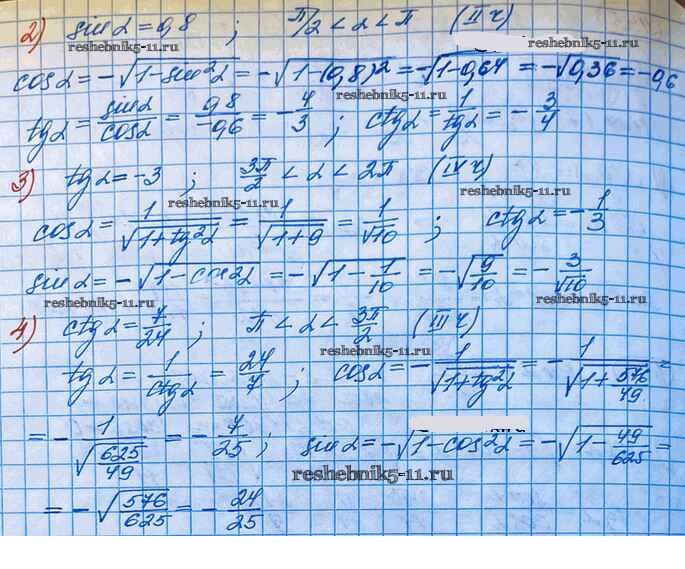 2) sin α = 0,8 ; π/2 < α < π (II ч)
reshebnik5-11.ru reshebnik5-11.ru
cos α = -√(1-sin²α) = -√(1-(0,8)²) = -√(1-0,64) = -√0,36 = -0,6
reshebnik5-11.ru reshebnik5-11.ru
tg α = sin α/cos α = 0,8/-0,6 = -4/3 ; ctg α = 1/tg α = -3/4
3) tg α = -3 ; 3π/2 < α < 2π (IV ч)
reshebnik5-11.ru reshebnik5-11.ru
cos α = 1/√(1+tg²α) = 1/√(1+9) = 1/√10 ; ctg α = -1/3
sin α = -√(1-cos²α) = -√(1-1/10) = -√(9/10) = -3/√10
reshebnik5-11.ru reshebnik5-11.ru
4) ctg α = 7/24 ; π < α < 3π/2 (III ч)
reshebnik5-11.ru
tg α = 1/ctg α = 24/7 ; cos α = -1/√(1+tg²α) = -1/√(1+576/49) =
= -1/√(625/49) = -7/25 ; sin α = -√(1-cos²α) = -√(1-49/625) =
reshebnik5-11.ru
= -√(576/625) = -24/25